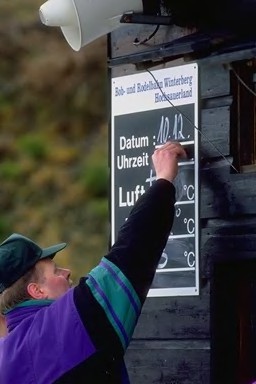 Bob- und Rodelbahn Winterberg
Hochsauerland
Datum : 10.12.
Uhrzeit
Luft °C
°C
°C